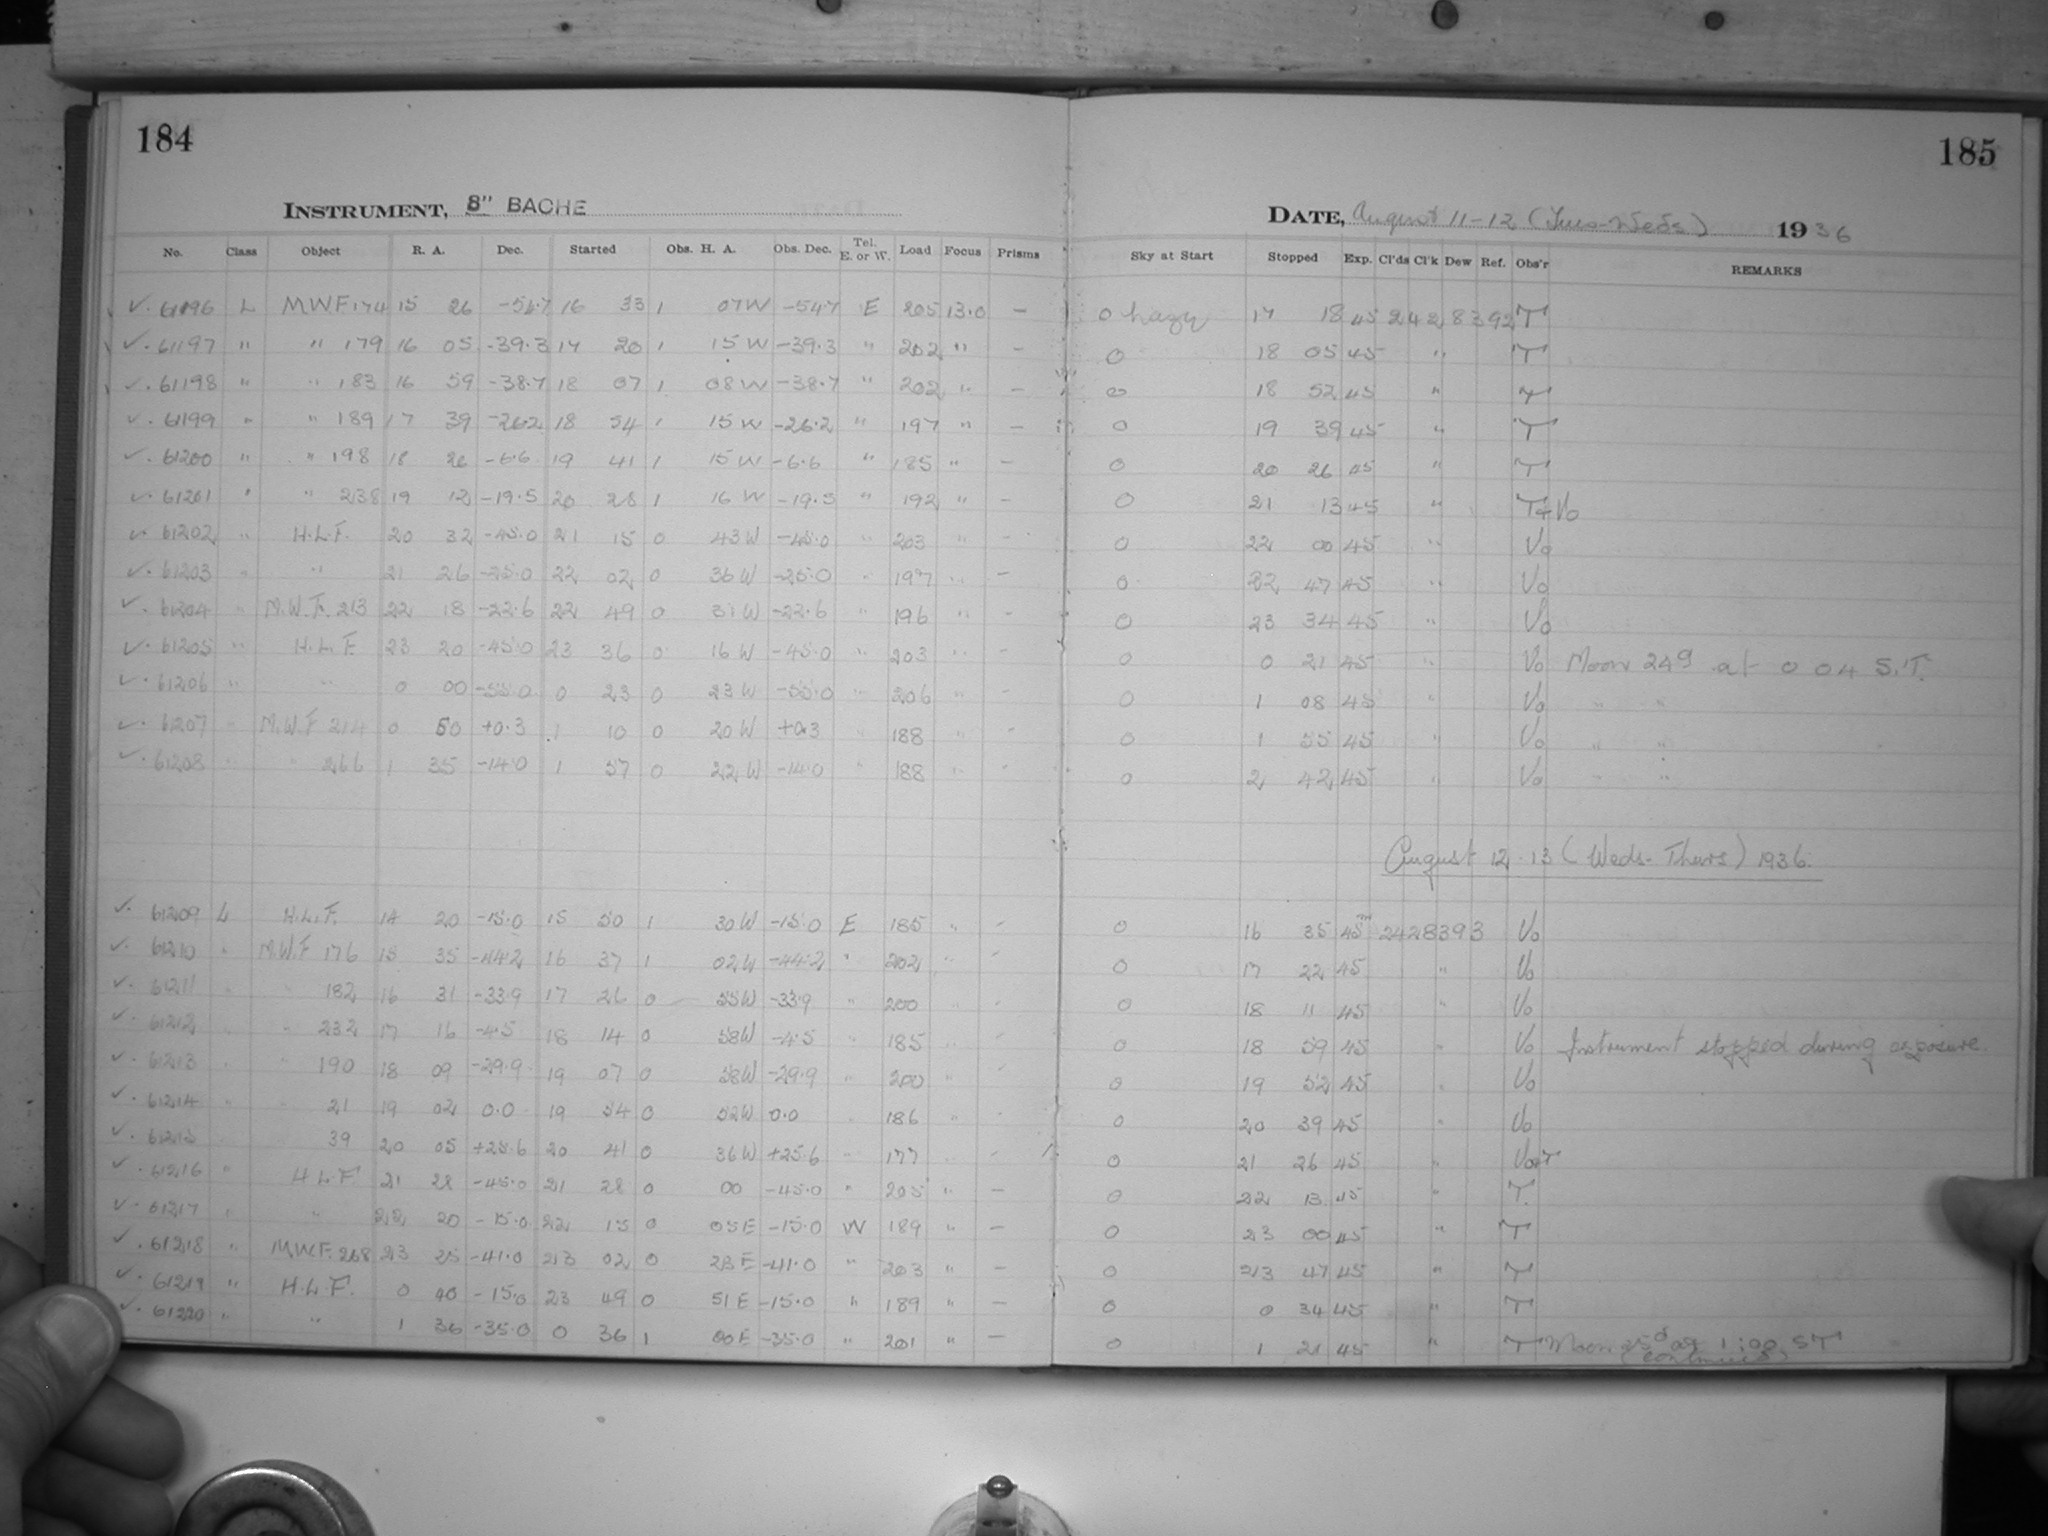 184
185
INSTRUMENT, 8" BACHE
DATE, August 11-12 (Tues-Weds) 1936
No. Class Object R. A. Dec. Started Obs. H. A. Obs. Dec. Tel. E. or W. Load Focus Prisms Sky at Start Stopped Exp. Cl'ds Cl'k Dew Ref. Obs'r REMARKS
✓. 61196 L M.W.F. 174 15 26 -54.7 16 33 1 07 W -54.7 E 205 13.0 — 0 hazy 17 18 45 2428392 T
✓. 61197 " " 179 16 05 -39.3 17 20 1 15 W -39.3 " 202 " — 0 18 05 45 " T
✓. 61198 " " 183 16 59 -38.7 18 07 1 08 W -38.7 " 202 " — 0 18 52 45 " T
✓. 61199 " " 189 17 39 -26.2 18 54 1 15 W -26.2 " 197 " — 0 19 39 45 " T
✓. 61200 " " 198 18 26 -6.6 19 41 1 15 W -6.6 " 185 " — 0 20 26 45 " T
✓. 61201 " " 238 19 12 -19.5 20 28 1 16 W -19.5 " 192 " — 0 21 13 45 " T+Vo
✓. 61202 " H.L.F. 20 32 -45.0 21 15 0 43 W -45.0 " 203 " — 0 22 00 45 " Vo
✓. 61203 " " 21 26 -25.0 22 02 0 36 W -25.0 " 197 " — 0 22 47 45 " Vo
✓. 61204 " M.W.F. 213 22 18 -22.6 22 49 0 31 W -22.6 " 196 " — 0 23 34 45 " Vo
✓. 61205 " H.L.F. 23 20 -45.0 23 36 0 16 W -45.0 " 203 " — 0 0 21 45 " Vo Moon 24d at 0 04 S.T.
✓. 61206 " " 0 00 -55.0 0 23 0 23 W -55.0 " 206 " — 0 1 08 45 " Vo " "
✓. 61207 " M.W.F. 214 0 50 +0.3 1 10 0 20 W +0.3 " 188 " — 0 1 55 45 " Vo " "
✓. 61208 " " 266 1 35 -14.0 1 57 0 22 W -14.0 " 188 " — 0 2 42 45 " Vo " "
August 12-13 (Weds-Thurs) 1936.
✓. 61209 L H.L.F. 14 20 -15.0 15 50 1 30 W -15.0 E 185 " — 0 16 35 45m 2428393 Vo
✓. 61210 " M.W.F 176 15 35 -44.2 16 37 1 02 W -44.2 " 202 " — 0 17 22 45 " Vo
✓. 61211 " " 182 16 31 -33.9 17 26 0 55 W -33.9 " 200 " — 0 18 11 45 " Vo
✓. 61212 " " 232 17 16 -4.5 18 14 0 58 W -4.5 " 185 " — 0 18 59 45 " Vo Instrument stopped during exposure.
✓. 61213 " " 190 18 09 -29.9 19 07 0 58 W -29.9 " 200 " — 0 19 52 45 " Vo
✓. 61214 " " 21 19 02 0.0 19 54 0 52 W 0.0 " 186 " — 0 20 39 45 " Vo
✓. 61215 " 39 20 05 +25.6 20 41 0 36 W +25.6 " 177 " — 0 21 26 45 " Vo+T
✓. 61216 " H.L.F 21 28 -45.0 21 28 0 00 -45.0 " 205 " — 0 22 13 45 " T.
✓. 61217 " " 22 20 -15.0 22 15 0 05 E -15.0 W 189 " — 0 23 00 45 " T
✓. 61218 " M.W.F. 268 23 25 -41.0 23 02 0 23 E -41.0 " 203 " — 0 23 47 45 " T
✓. 61219 " H.L.F. 0 40 -15.0 23 49 0 51 E -15.0 " 189 " — 0 0 34 45 " T
✓. 61220 " " 1 36 -35.0 0 36 1 00 E -35.0 " 201 " — 0 1 21 45 " T Moon 25d at 1:00 ST
(continued)